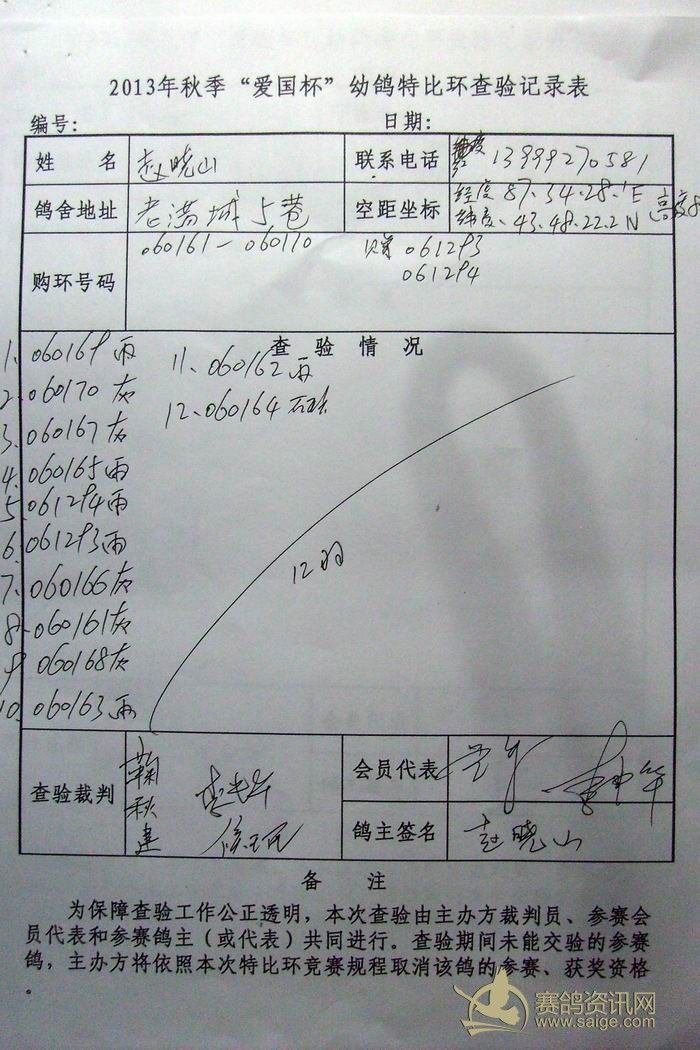 2013年秋季“爱国杯”幼鸽特比环查验记录表
编号: 日期:
姓 名 赵晓山 联系电话 13999270581
鸽舍地址 老满城5巷 空距坐标 经度 87.34.28.1E
纬度.43.48.22.2N 高度
购环号码 060161-060170 061293
061294
查 验 情 况
1、060169雨
2、060170灰
3、060167灰
4、060165雨
5、061294雨
6、061293雨
7、060166灰
8、060161灰
9、060168灰
10、060163雨
11、060162雨
12、060164石板
12羽
查验裁判 鞠秋建
会员代表
鸽主签名 赵晓山
备 注
为保障查验工作公正透明，本次查验由主办方裁判员、参赛会
员代表和参赛鸽主（或代表）共同进行。查验期间未能交验的参赛
鸽，主办方将依照本次特比环竞赛规程取消该鸽的参赛、获奖资格
。
赛鸽资讯网
www.saige.com